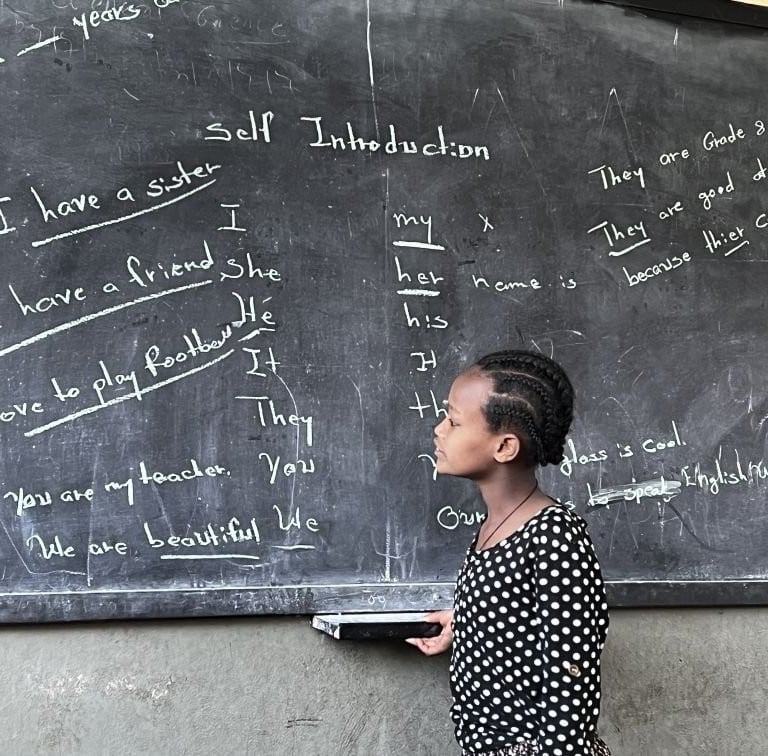 years
Self Introduction
I have a sister
have a friend
ove to play football
You are my teacher.
We are beautiful
I my x
She her name is
He his
It It
They th
You
We Our
They are Grade 8
They are good
because thier
glass is cool.
to speak English